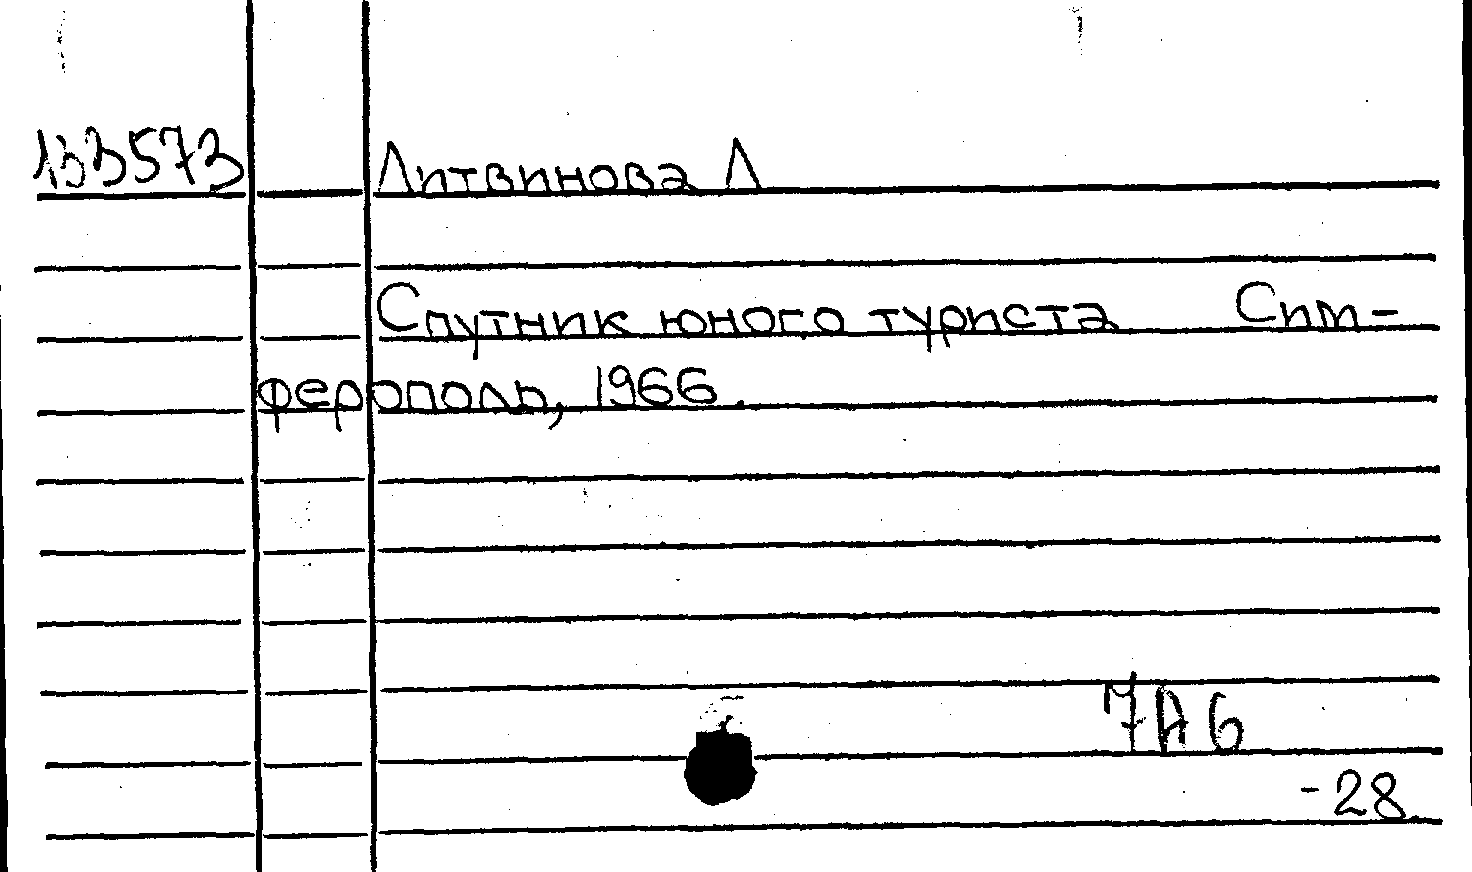 133573 Литвинова Л
Спутник юного туриста Сим-
ферополь, 1966.
7А6
-28